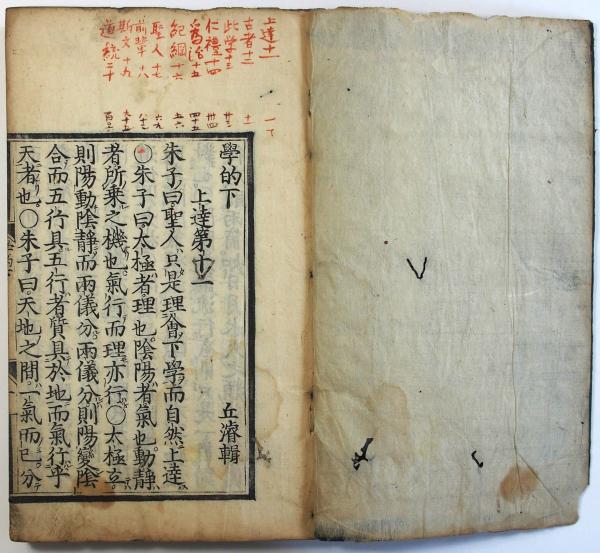 上達十一
古者十二
此学十三
仁禮十四
為治十五
紀綱十六
聖人十七
前輩十八
斯文十九
道統二十
學的下
丘濬輯
上達第十一
朱子曰聖人只是理會下學而自然上達
〇朱子曰太極者理也陰陽者氣也動靜
者所乗之機也氣行而理亦行〇太極立
則陽動陰靜而兩儀分兩儀分則陽變陰
合而五行具五行者質具於地而氣行乎
天者也〇朱子曰天地之間一氣而已分